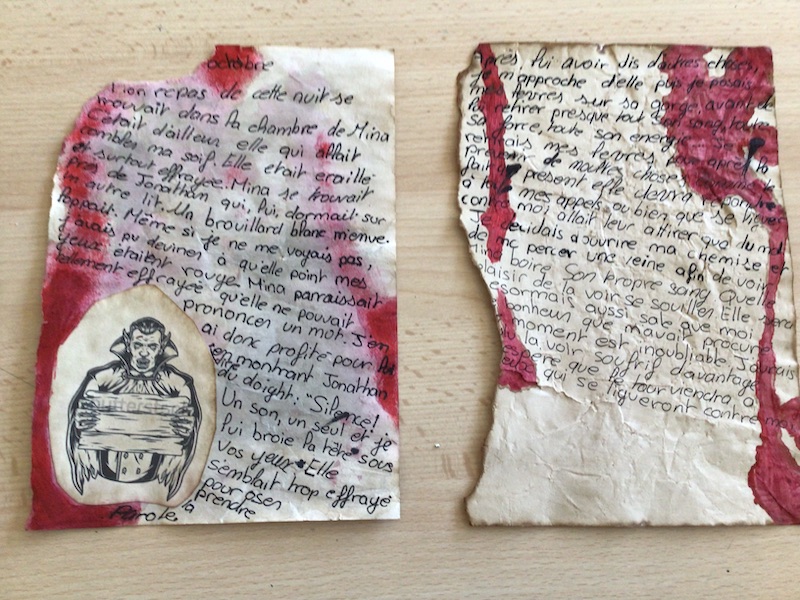 octobre
Mon repas de cette nuit se
trouvait dans la chambre de Mina
C'était d'ailleur elle qui allait
combler ma soif. Elle était éraillé
et surtout effrayée. Mina se trouvait
près de Jonathan qui, lui, dormait sur
un autre lit. Un brouillard blanc m'enve-
loppait. Même si je ne me voyais pas,
j'avais pu deviner à qu'elle point mes
yeux étaient rouge. Mina parraissait
tellement effrayée qu'elle ne pouvait
prononcer un mot. J'en
ai donc profité pour lui
en montrant Jonathan
du doight: "Silence!
Un son, un seul et je
lui broie la tête sous
vos yeux. Elle
semblait trop effrayé
pour oser
prendre
la
Parole.
Après, lui avoir dis d'autres choses,
Je m'approche d'elle puis je posais
mes lèvres sur sa gorge, avant de
lui retirer presque tout son sang, toute
sa force, toute son energie. Je
retirais mes lèvres
présent elle devra répondre
à tout mes appels ou bien que se liguer
contre moi allait leur attirer que du mal
Je décidais d'ouvrire ma chemise et
de me percer une veine afin de voir
boire son propre sang. Quelle
plaisir de la voir se souiller. Elle sera
désormais aussi sale que moi.
bonheur que m'avait procuré
moment est inoubliable. J'aurais
la voir souffrir davantage.
espère que le tour viendra à
ceux qui se ligueront contre moi